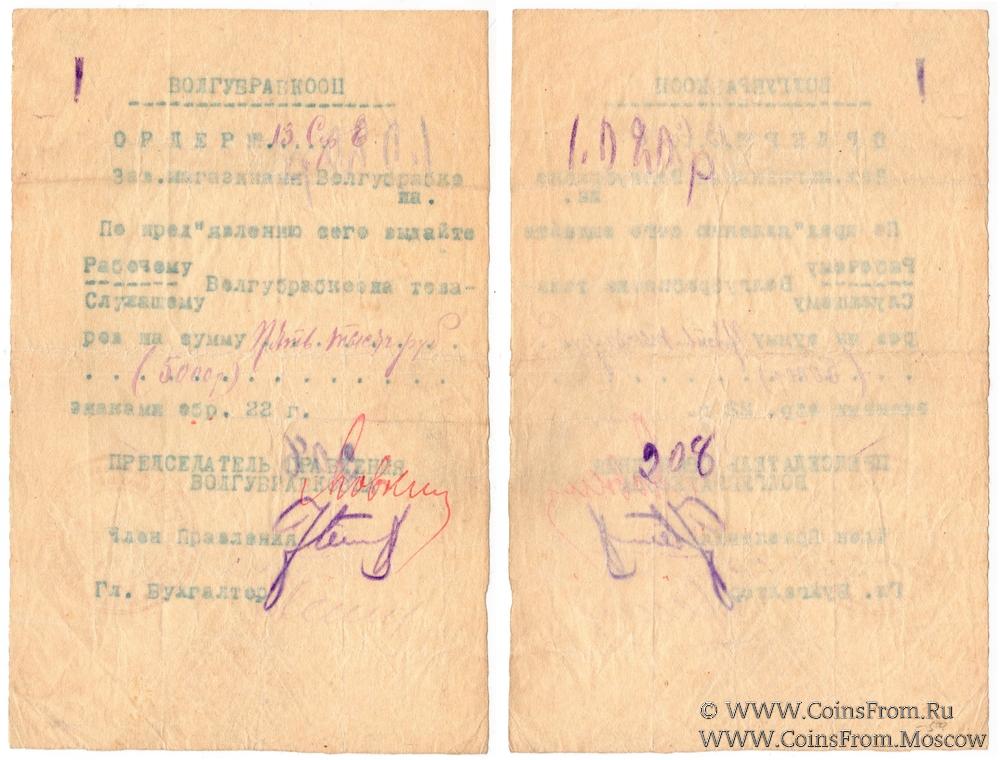 ВОЛГУБРАБКООП
ОРДЕР № 13. Сер Б
Зав.магазинами Волгубрабко
па.
По пред"явлению сего выдайте
Рабочему
Волгубрабкоопа това-
Служащему
ров на сумму Пять тысяч руб.
(5000 р.)
знаками обр. 22 г.
ПРЕДСЕДАТЕЛЬ ПРАВЛЕНИЯ
ВОЛГУБРАБКООПА
Член Правления
Гл. Бухгалтер
208
© WWW.CoinsFrom.Ru
WWW.CoinsFrom.Moscow